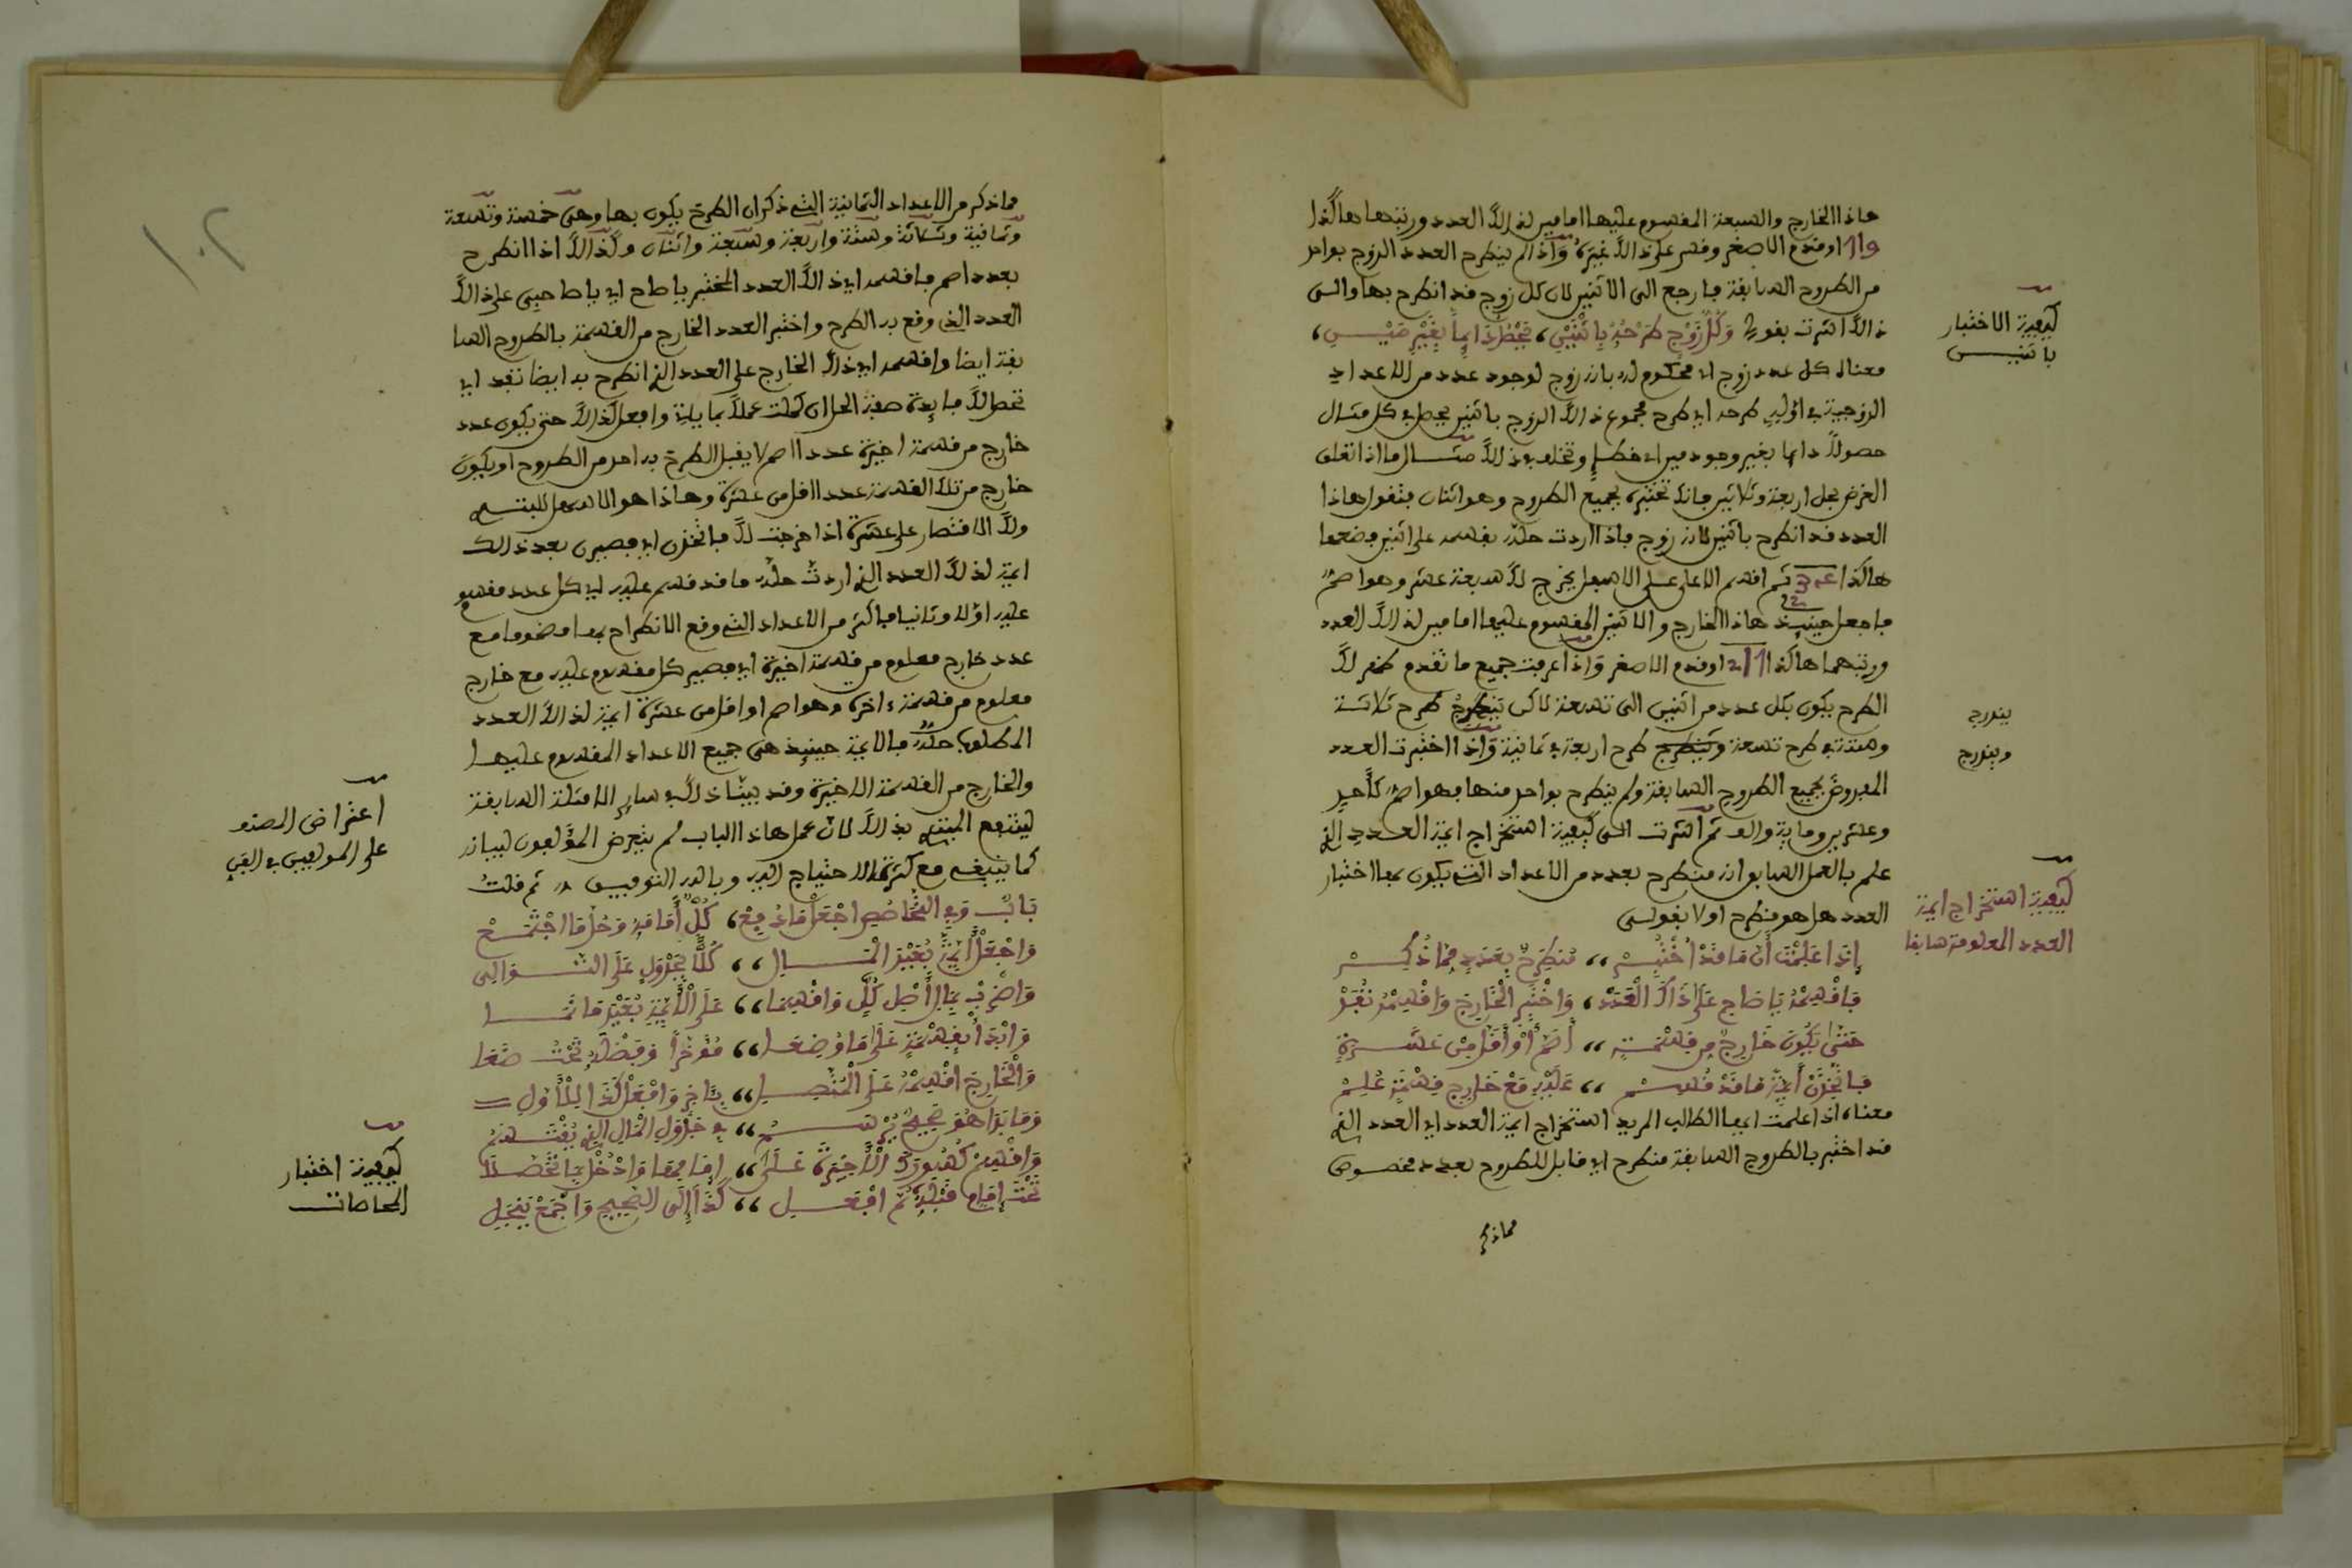 هاذا الخارج والسبعة المقسوم عليها امامين لذالك العدد ورتبهما هاكذا
او قدم الاصغر وقس على ذالك غيره واذا لم ينطرح العدد الزوج بواحد
من الطروح السابقة فارجع الى الاثنين لان كل زوج قد انطرح بها والى
ذالك اشرت بقولي وكل زوج طرحه باثنين، يحط دايما بغير مين،
معناه كل عدد زوج اي محكوم له بانه زوج لوجود عدد من الاعداد
الزوجية في اوله طرحه اي طرح مجموع ذالك الزوج باثنين يحط في كل مثال
حصوله دايما بغير وجود مين اي خطإ وتخلف في ذالك مثال ما اذا تعلق
الغرض بحل اربعة وثلاثين فانك تختبره بجميع الطروح وهو اثنان فتقول هاذا
العدد قد انطرح باثنين لانه زوج فاذا اردت حله فاقسمه على اثنين فضعهما
هاكذا ثم اقسم الاعلى على الاسفل يخرج لك سبعة عشر وهو اصم
فاجعل حينيذ هاذا الخارج والاثنين المقسوم عليها امامين لذالك العدد
ورتبهما هاكذا او قدم الاصغر واذا عرفت جميع ما تقدم ظهر لك
الطرح يكون بكل عدد من اثنين الى تسعة لاكن ينطرح طرح ثلاثة
وستة في طرح تسعة وينطرح طرح اربعة في ثمانية واذا اختبرت العدد
المفروض بجميع الطروح السابقة ولم ينطرح بواحد منها فهو اصم كأحد
وعشرين وماية والف ثم اشرت الى كيفية استخراج ايمة العدد الذي
علم بالعمل السابق انه منطرح بعدد من الاعداد التي يكون بها اختبار
العدد هل هو منطرح او لا بقولى
إذا علمت أن ما قد اختبر ،، منطرح بعدد مما ذكر
فاقسمه يا صاح على ذاك العدد، واختبر الخارج واقسمه تفد
حتى يكون خارج من قسمة ،، أصم أو أقل من عشرة
فاتخذن أيمة ما قد قسم ،، عليه مع خارج قسمة علم
معناه اذا علمت ايها الطالب المريد استخراج ايمة العدد اي العدد الذي
قد اختبر بالطروح السابقة منطرح اي قابل للطروح بعدد مخصوص
مما ذكر
كيفية الاختبار
باثنيـن
يندرج
ويندرج
كيفية استخراج ايمة
العدد المعلومة سابقا
مما ذكر من الاعداد الثمانية التي ذكر ان الطرح يكون بها وهي خمسة وتسعة
وثمانية وثلاثة وستة واربعة وسبعة واثنان ولذالك اذا انطرح
بعدد اصم فاقسمه اي ذالك العدد المختبر يا صاح اي يا صاحبي على ذالك
العدد الذي وقع به الطرح واختبر العدد الخارج من القسمة بالطروح السا
بقة ايضا واقسمه اي ذالك الخارج على العدد الذي انطرح به ايضا تفد اي
تحصل لك فايدة صفة الحل ان كملت عملك بما يليه وافعل كذالك حتى يكون عدد
خارج من قسمة اخيرة عددا اصم لا يقبل الطرح بواحد من الطروح او يكون
خارج من تلك القسمة عددا اقل من عشرة وهاذا هو الاسهل للمبتدي
ولك الاقتصار على عشرة اذا خرجت لك فاتخذن اي فصيرن بعد ذالك
ايمة لذالك العدد الذي اردت حله ما قد قسم عليه اي كل عدد مقسوم
عليه اولا وثانيا فاكثر من الاعداد التي وقع الانطراح بها مضموما مع
عدد خارج معلوم من قسمة اخيرة اي فصير كل مقسوم عليه مع خارج
معلوم من قسمة ءاخرة وهو اصم او اقل من عشرة ايمة لذالك العدد
المطلوب حله فالايمة حينيذ هى جميع الاعداد المقسوم عليها
والخارج من القسمة الاخيرة وقد بينا ذالك في ساير الامثلة السابقة
لينتفع المبتدي بذالك لان عمل هاذا الباب لم يتعرض المؤلفون لبيانه
كما ينبغي مع كثرة الاحتياج اليه وبالله التوفيق ،، ثم قلت
باب وفي التحاصص اجعل ما دفع، كل أمامه وحل ما اجتمع
واجعل أيمة بغير المال ،، كلا بجدول على التوالى
واضرب بمال أصل كل واقسما ،، على الأيمة بغير ما نما
وابدأ بقسمة على ما وضعا ،، مؤخرا وفضله تحت ضعا
والخارج اقسمه على المتصل ،، بتاخر وافعل كذا للأول
وما بدا هو صحيح يرسم ،، في جدول المال الذي يقتسم
واقسم كسورك الأخيرة على ،، إمامها وادخل بما تحصلا
تحت إمام قبله ثم افعل ،، كذا إلى الصحيح واجمع ينجل
اعتراض المصنف
على المولفين في الفن
كيفية اختبار
المحاصات
١٠٢